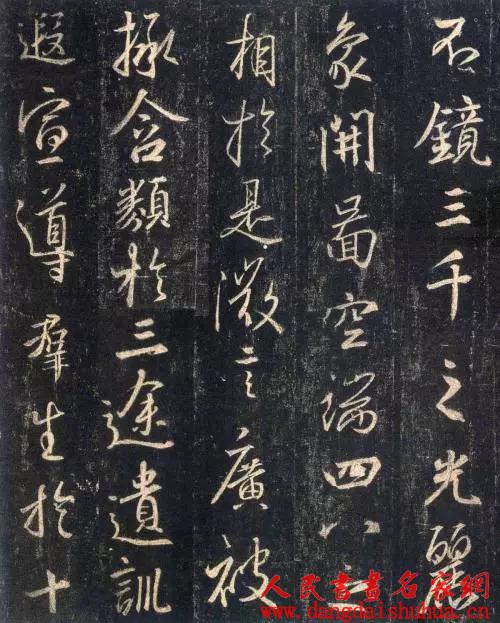 不鏡三千之光麗
象開啚空端四八之
相於是微言廣被
拯含類於三途遺訓
遐宣導羣生於十
人民書畫名家網
www.dangdaishuhua.cn